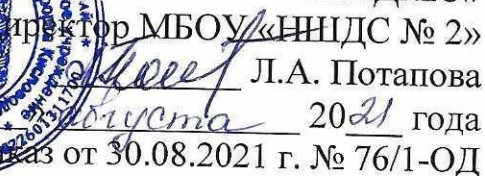 директор МБОУ «НШДС № 2»
Л.А. Потапова
августа 2021 года
каз от 30.08.2021 г. № 76/1-ОД